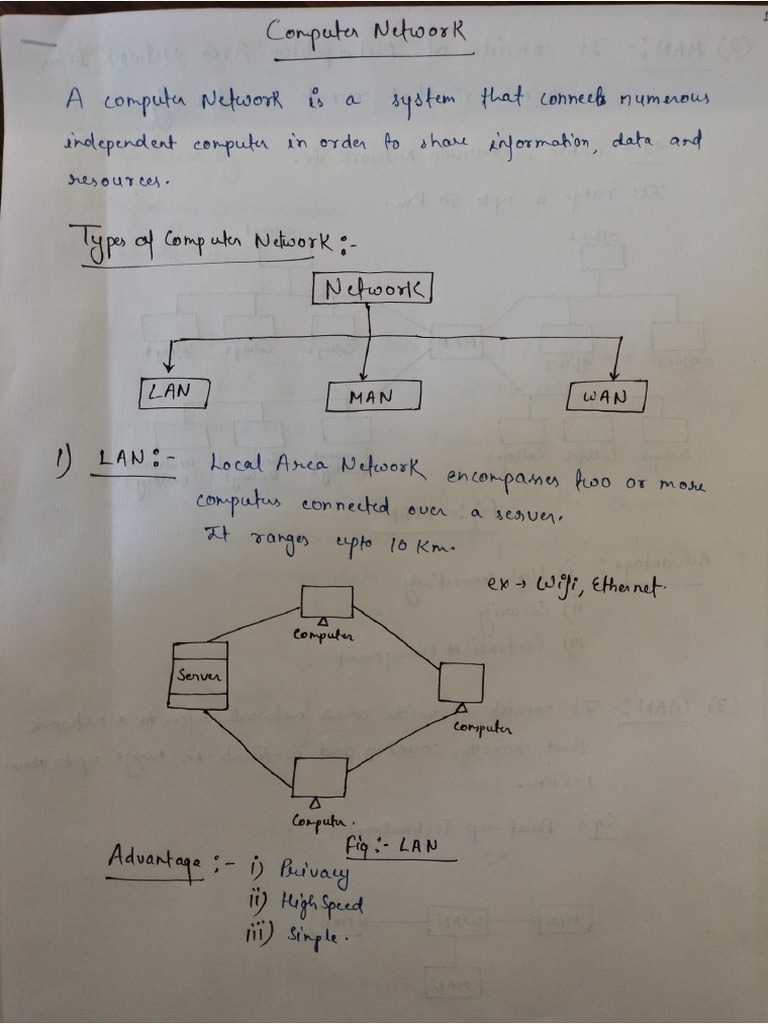 1
Computer Network
A computer Network is a system that connects numerous
independent computer in order to share information, data and
resources.
Types of Computer Network :-
Network
LAN MAN WAN
1) LAN :- Local Area Network encompasses two or more
computers connected over a server.
It ranges upto 10 Km.
ex → Wifi, Ethernet.
Computer
Server
Computer
Computer.
Fig :- LAN
Advantage :- i) Privacy
ii) High Speed
iii) Simple.